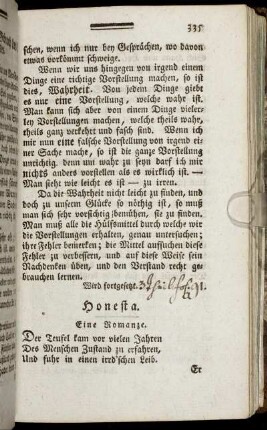 335
schen, wenn ich nur bey Gesprächen, wo davon
etwas vorkömmt schweige.
Wenn wir uns hingegen von irgend einem
Dinge eine richtige Vorstellung machen, so ist
dies, Wahrheit. Von jedem Dinge giebt
es nur eine Vorstellung, welche wahr ist.
Man kann sich aber von einem Dinge vieler-
ley Vorstellungen machen, welche theils wahr,
theils ganz verkehrt und fasch sind. Wenn ich
mir nun eine falsche Vorstellung von irgend ei-
ner Sache mache, so ist die ganze Vorstellung
unrichtig, denn um wahr zu seyn darf ich mir
nichts anders vorstellen als es wirklich ist. —
Man sieht wie leicht es ist — zu irren.
Da die Wahrheit nicht leicht zu finden, und
doch zu unserm Glücke so nöthig ist, so muß
man sich sehr vorsichtig bemühen, sie zu finden.
Man muß alle die Hülfsmittel durch welche wir
die Vorstellungen erhalten, genau untersuchen;
ihr Fehler bemerken; die Mittel aufsuchen diese
Fehler zu verbessern, und auf diese Weise sein
Nachdenken üben, und den Verstand recht ge-
brauchen lernen.
Wird fortgesetzt.
Honesta.
Eine Romanze.
Der Teufel kam vor vielen Jahren
Des Menschen Zustand zu erfahren,
Und fuhr in einen ird'schen Leib.
Er